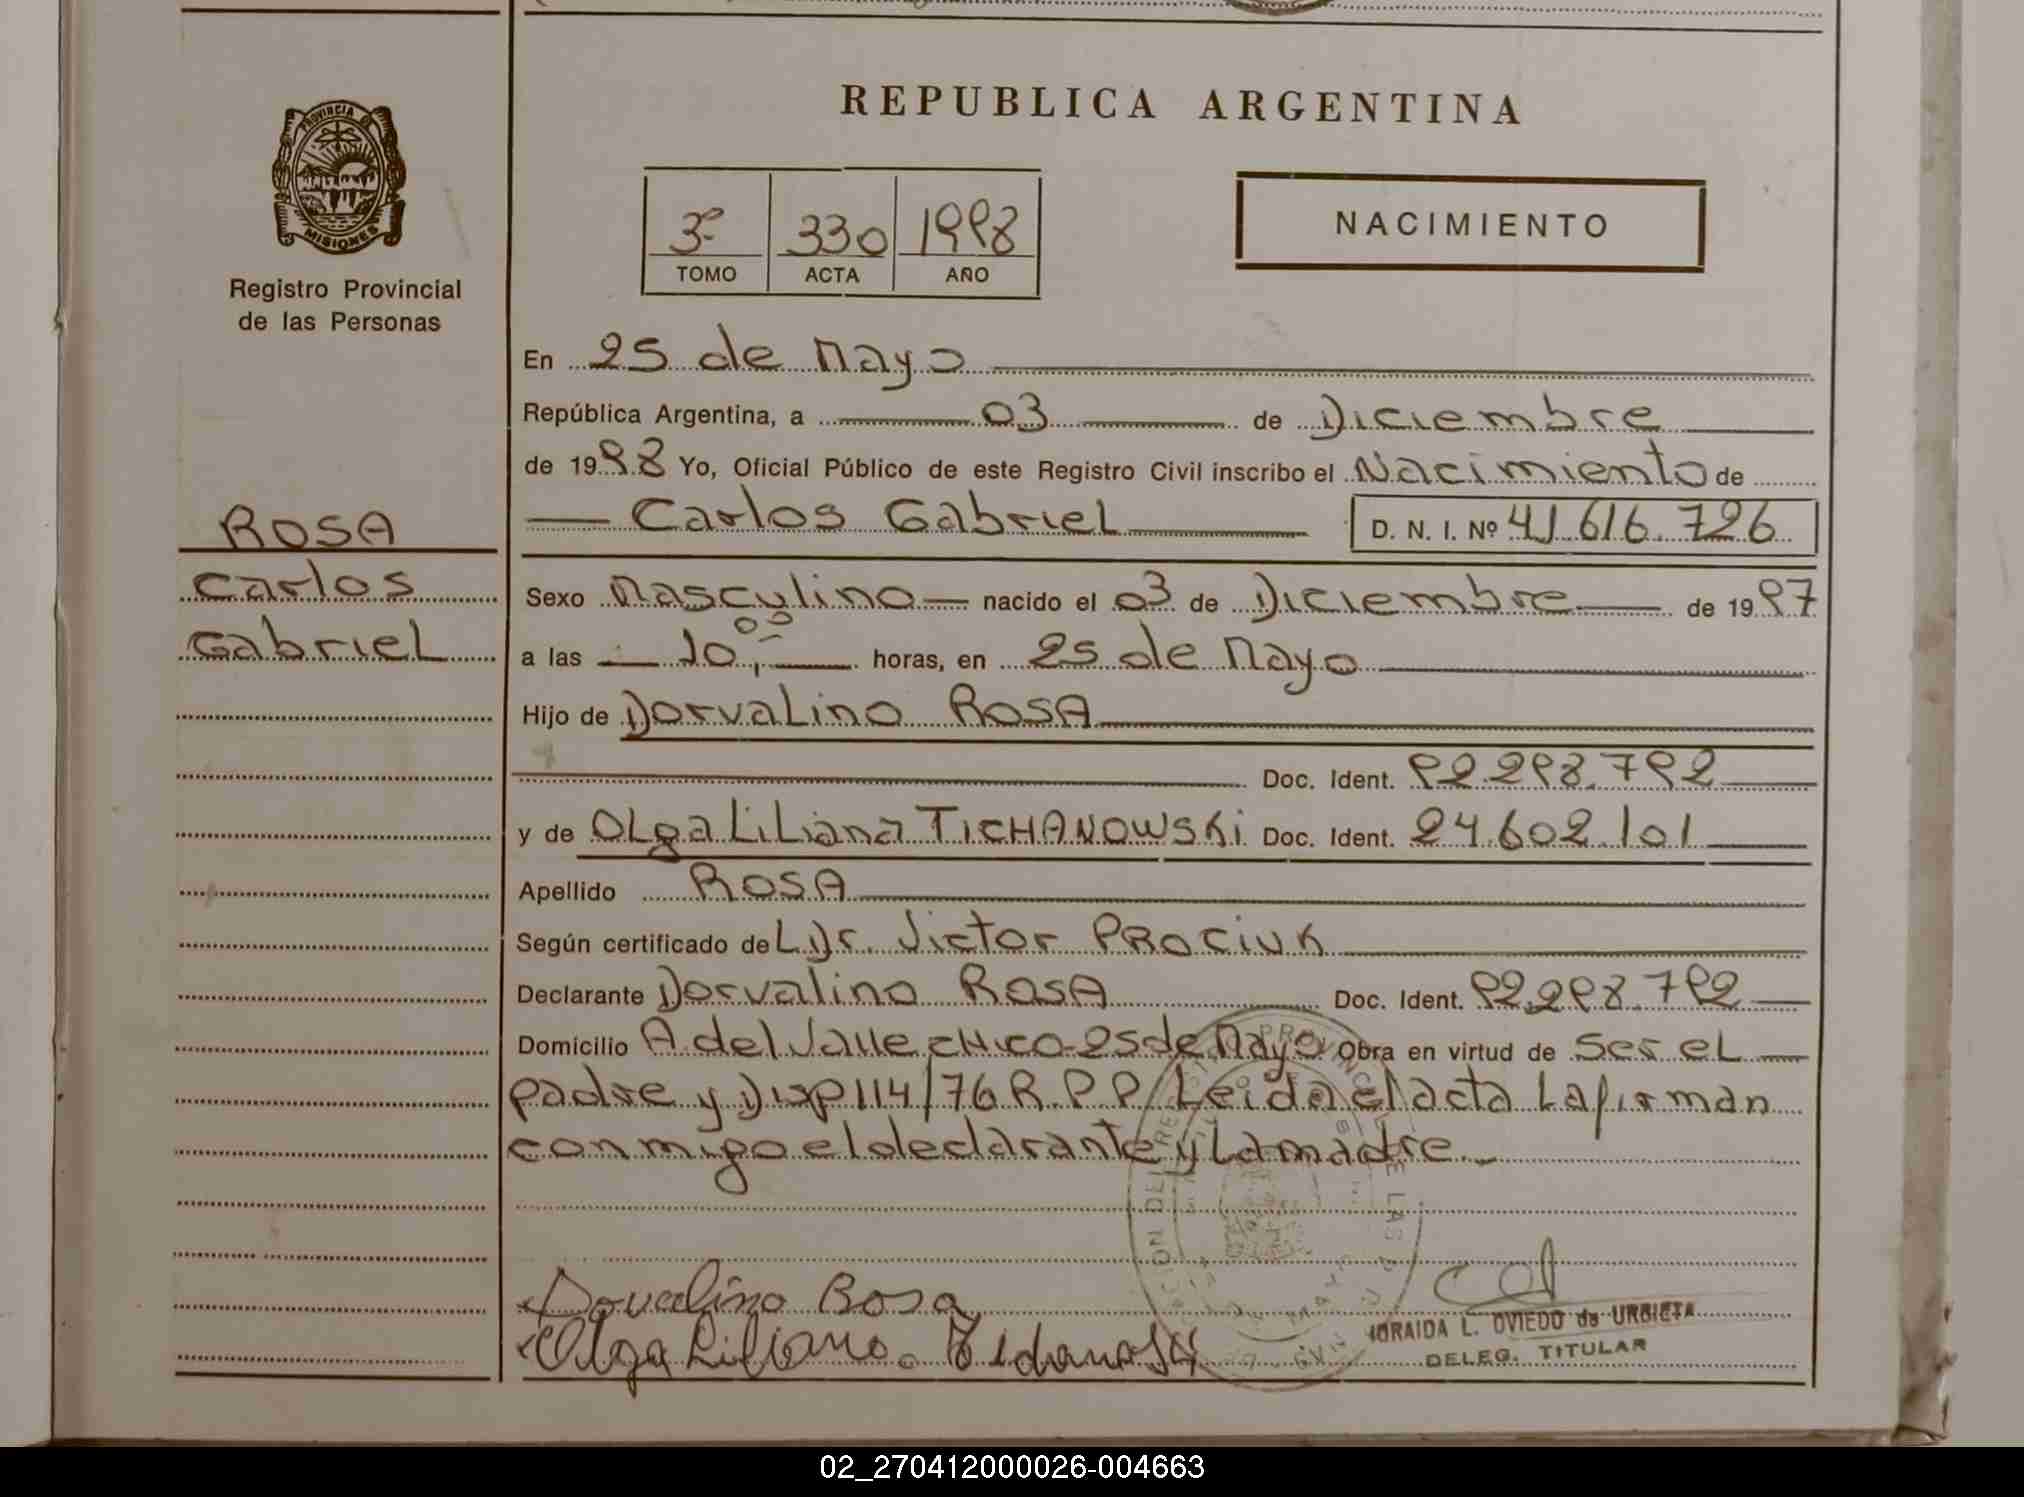 REPUBLICA ARGENTINA
PROVINCIA D
MISIONES
Registro Provincial
de las Personas
3º 330 1998
TOMO ACTA AÑO
NACIMIENTO
En 25 de Mayo
República Argentina, a 03 de Diciembre
de 1998 Yo, Oficial Público de este Registro Civil inscribo el Nacimiento de
Carlos Gabriel D. N. I. Nº 41.616.726
ROSA
Carlos
Gabriel
Sexo Masculino nacido el 03 de Diciembre de 1997
a las 10,00 horas, en 25 de Mayo
Hijo de Dorvalino ROSA
Doc. Ident. 92.298.792
y de Olga Liliana TICHANOWSKi Doc. Ident. 24.602.101
Apellido ROSA
Según certificado de L Dr. Victor PROCIUK
Declarante Dorvalino ROSA Doc. Ident. 92.298.792
Domicilio A. del Valle CHICO-25 de Mayo Obra en virtud de ser el
padre y Disp 114/76 R.P.P. Leida el acta La firman
conmigo el declarante y La madre.
Dovalino Rosa
Olga Liliana
ORAIDA L. OVIEDO de URBIETA
DELEG. TITULAR
02_270412000026-004663